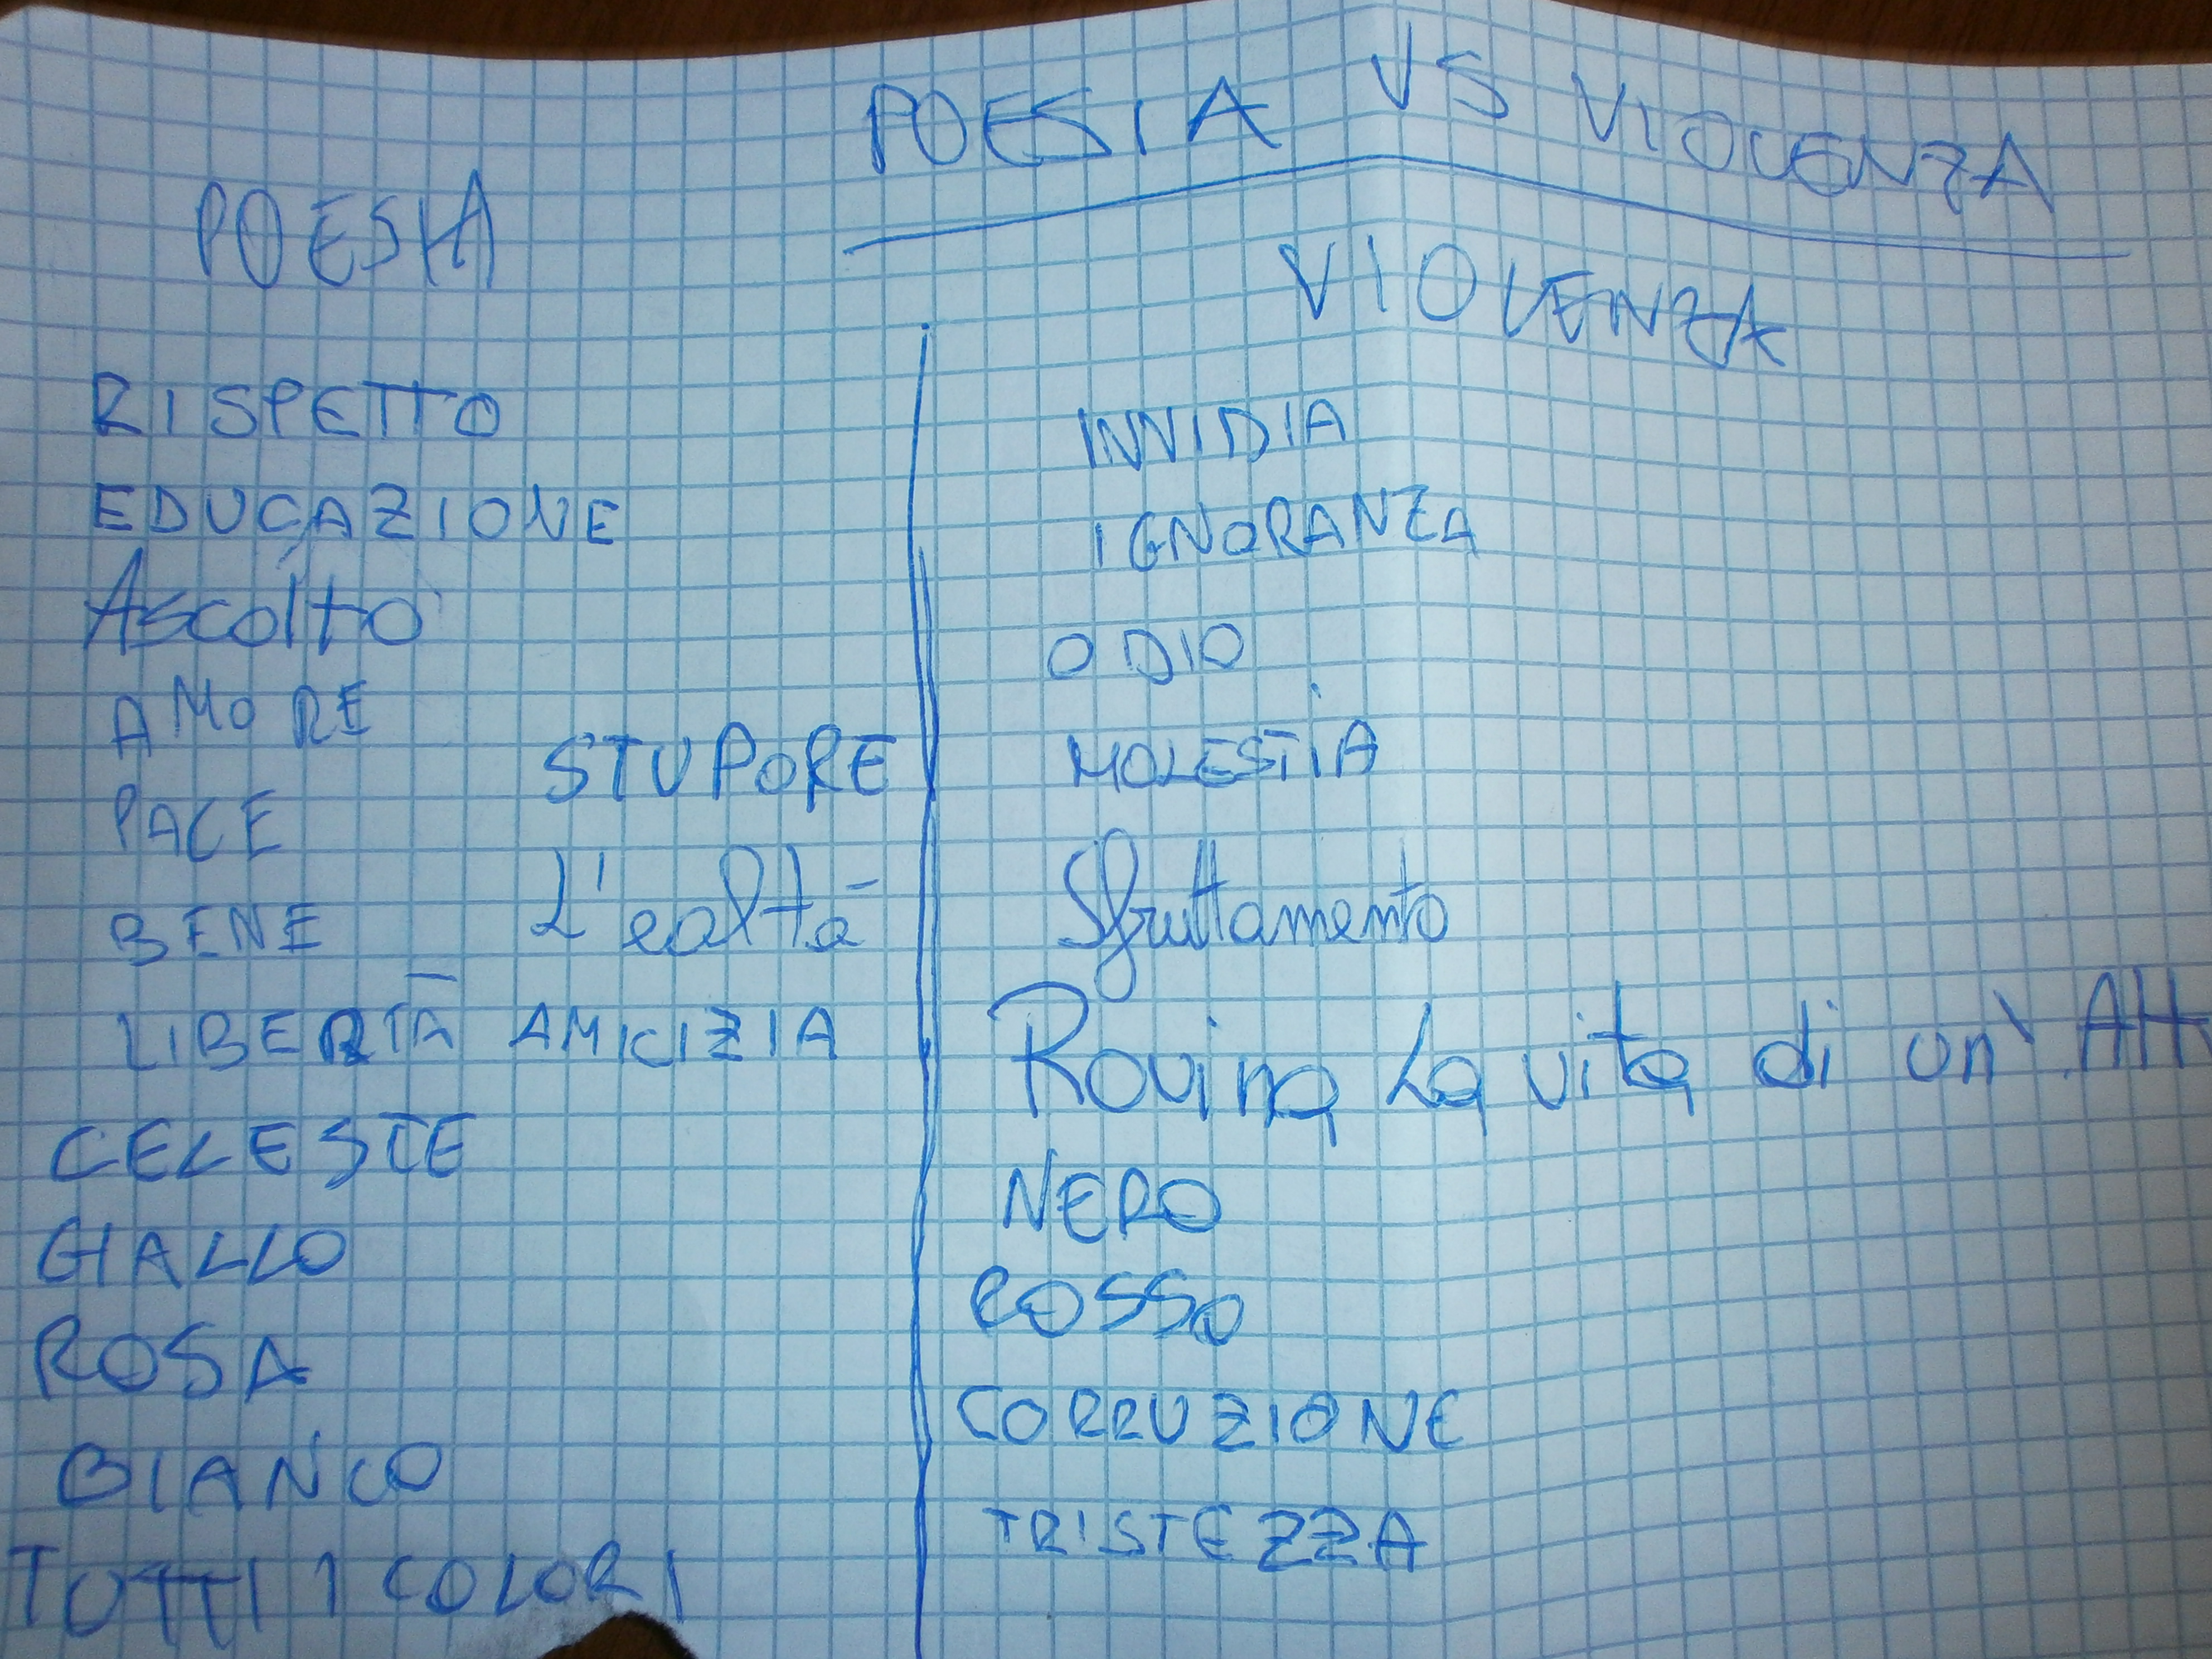 POESIA VS VIOLENZA
POESIA
RISPETTO
EDUCAZIONE
Ascolto
AMORE
PACE
BENE
LIBERTÀ
CELESTE
GIALLO
ROSA
BIANCO
TUTTI I COLORI
STUPORE
L'ealtà
AMICIZIA
VIOLENZA
INVIDIA
IGNORANZA
ODIO
MOLESTIA
Sfruttamento
Rovina La vita di un'
NERO
ROSSO
CORRUZIONE
TRISTEZZA